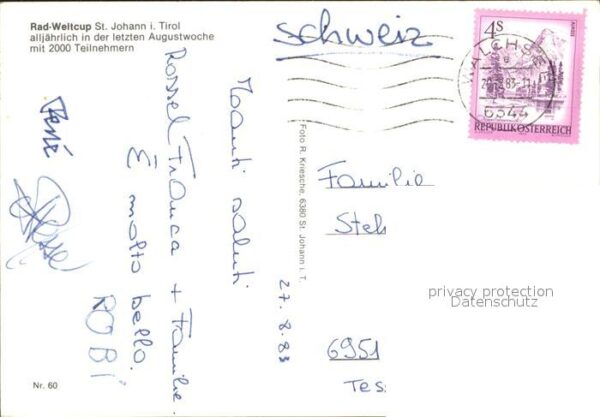 Rad-Weltcup St. Johann i. Tirol
alljährlich in der letzten Augustwoche
mit 2000 Teilnehmern
Schweiz
4S
REPUBLIK ÖSTERREICH
WALCHSEE
6344
Tanti saluti
Rossel Franca + Familie.
È molto bello.
ROBI
René
27.8.83
Foto R. Kriesche, 6380 St. Johann i. T.
Familie
Steh
6951
Tes
privacy protection
Datenschutz
Nr. 60